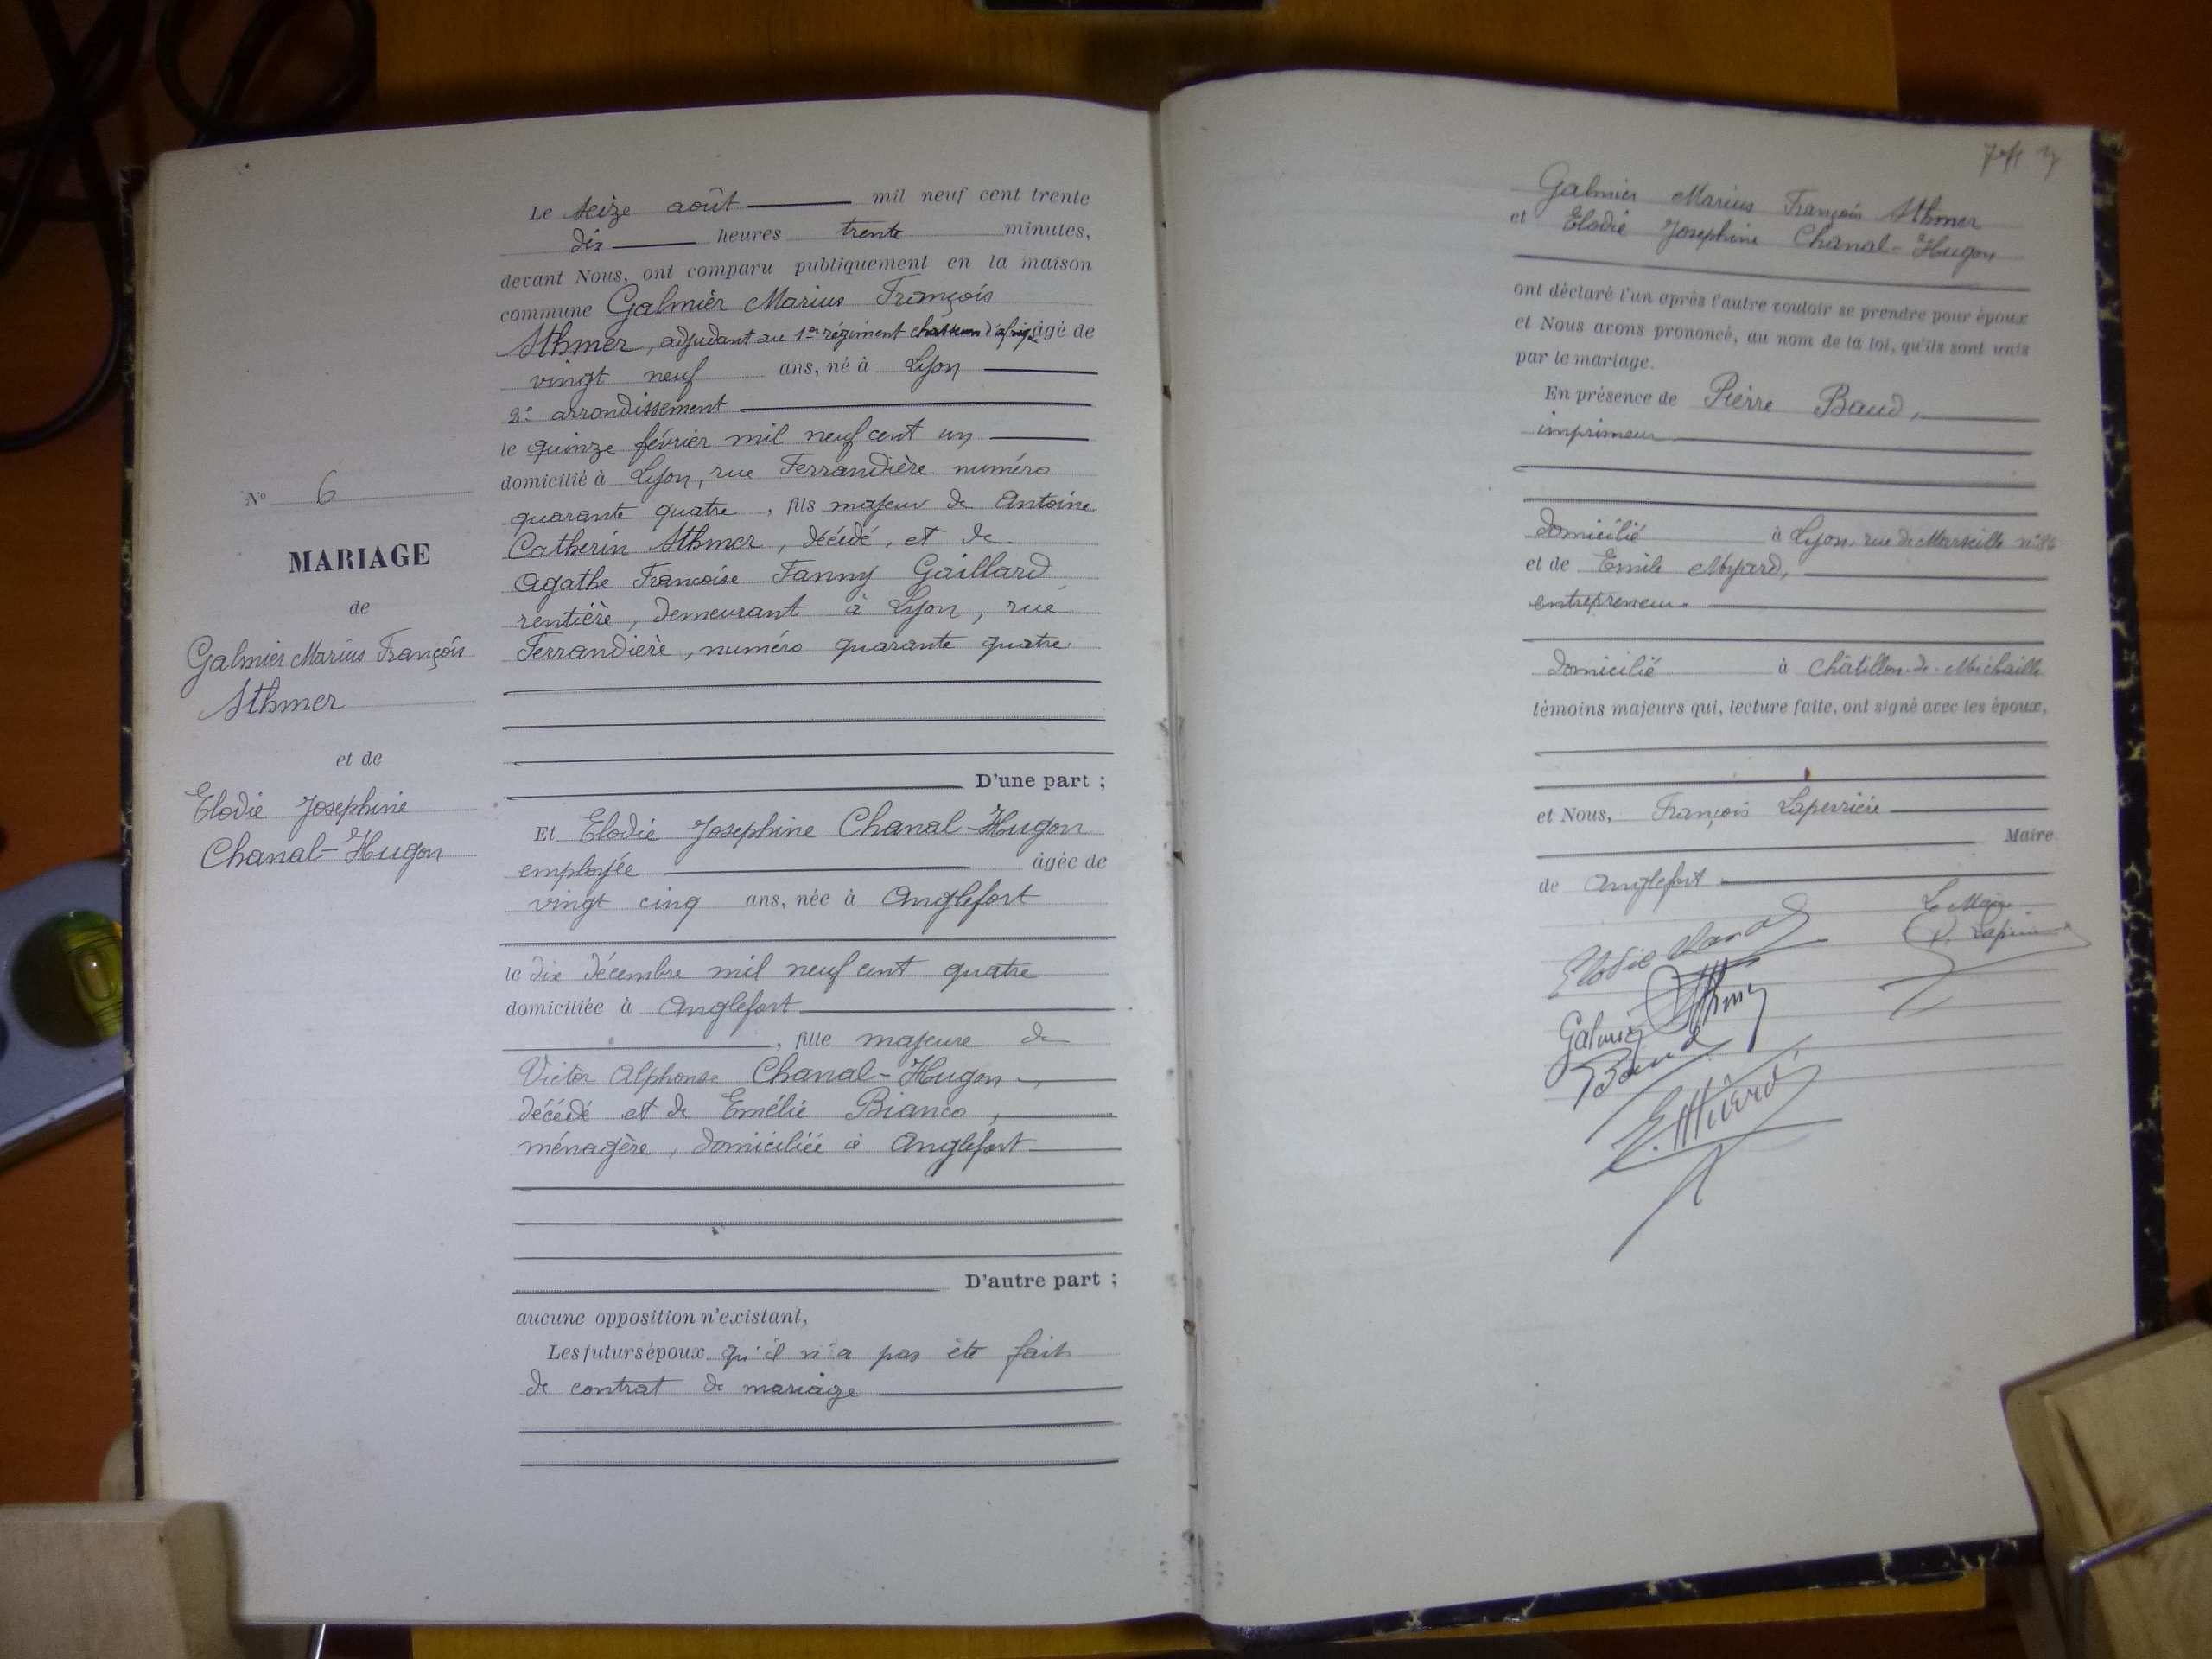 N° 6
MARIAGE
de
Galmier Marius François
Sthmer
et de
Elodie Josephine
Chanal-Hugon
Le seize août mil neuf cent trente
dix heures trente minutes,
devant Nous, ont comparu publiquement en la maison
commune Galmier Marius François
Sthmer, adjudant au 1er régiment chasseurs d'afrique âgé de
vingt neuf ans, né à Lyon
2e arrondissement
le quinze février mil neuf cent un
domicilié à Lyon, rue Ferrandière numéro
quarante quatre, fils majeur de Antoine
Catherin Sthmer, décédé, et de
Agathe Françoise Fanny Gaillard
rentière, demeurant à Lyon, rue
Ferrandière, numéro quarante quatre
D'une part ;
Et Elodie Josephine Chanal-Hugon
employée âgée de
vingt cinq ans, née à Anglefort
le dix décembre mil neuf cent quatre
domiciliée à Anglefort
, fille majeure de
Victor Alphonse Chanal-Hugon,
décédé et de Emélie Bianco,
ménagère, domiciliée à Anglefort
D'autre part ;
aucune opposition n'existant,
Les futurs époux qu'il n'a pas été fait
de contrat de mariage
Galmier Marius François Sthmer
et Elodie Josephine Chanal-Hugon
ont déclaré l'un après l'autre vouloir se prendre pour époux
et Nous avons prononcé, au nom de la loi, qu'ils sont unis
par le mariage.
En présence de Pierre Baud,
imprimeur
domicilié à Lyon, rue de Marseille n°
et de Emile
entrepreneur
domicilié à Châtillon-de-Michaille
témoins majeurs qui, lecture faite, ont signé avec les époux,
et Nous, François Laperrière
Maire
de Anglefort
Le Maire
Elodie Chanal
Galmier Sthmer
Baud